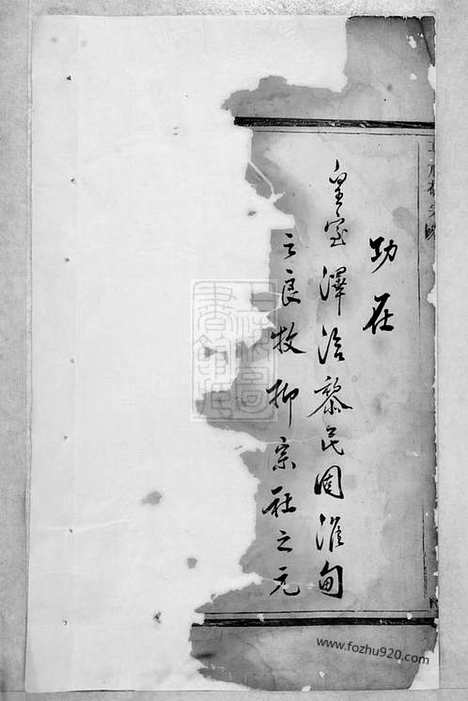 功在
皇室澤洽黎民固淮甸
之良牧抑宗社之元
www.fozhu920.com